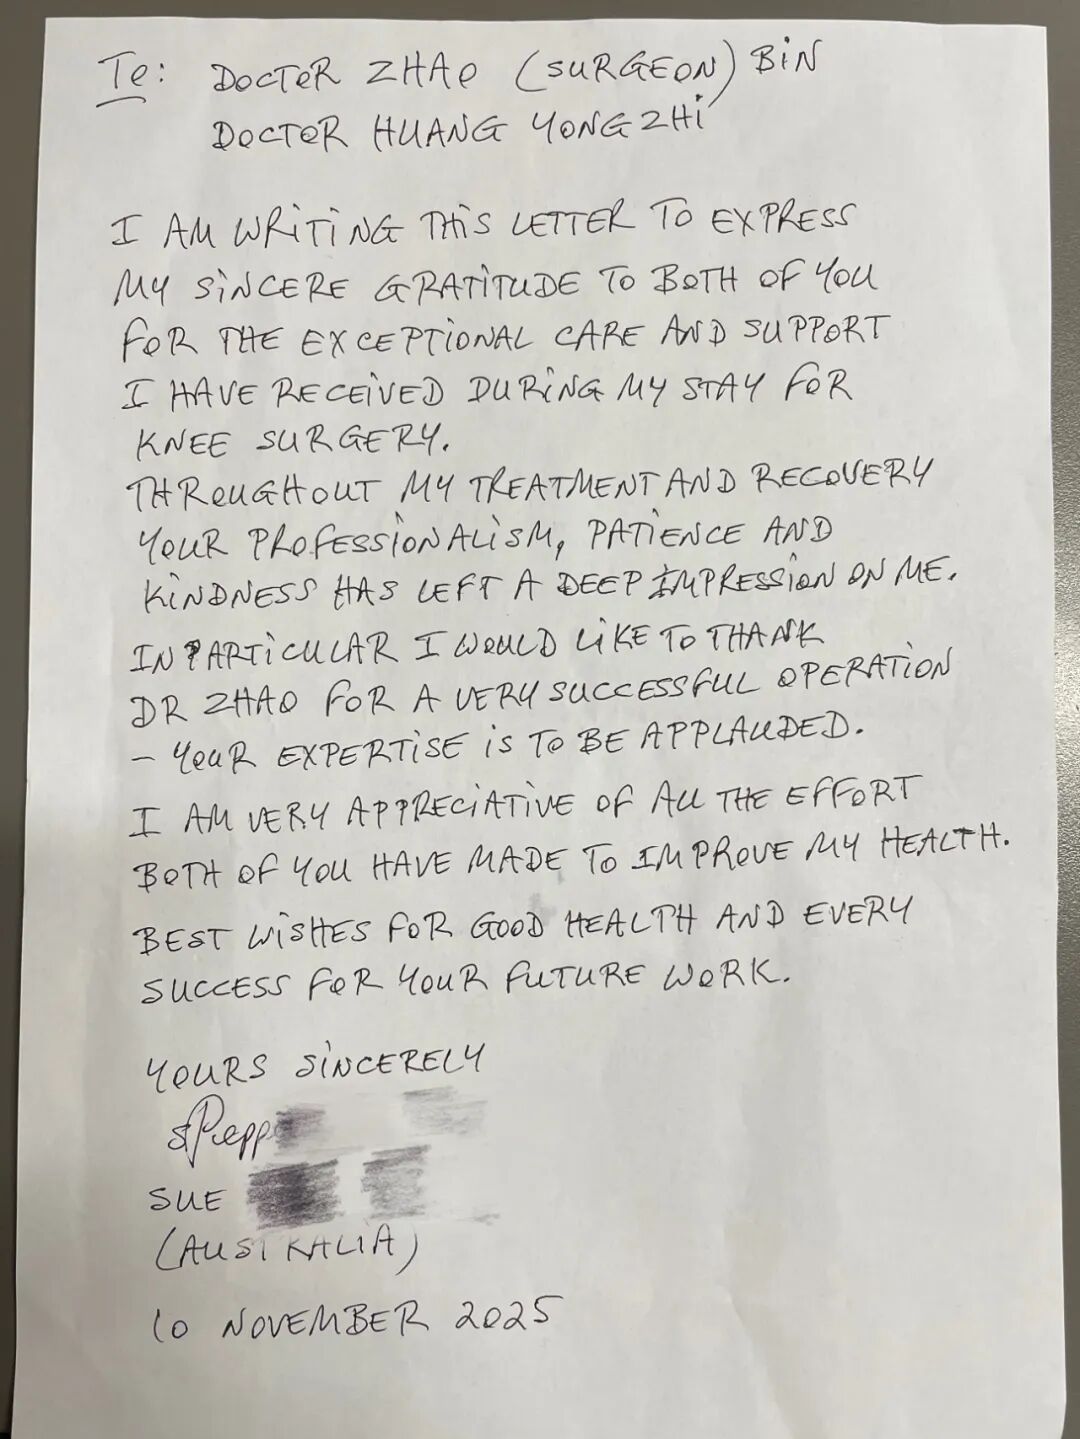 To: DOCTOR ZHAO (SURGEON) BIN
DOCTOR HUANG YONGZHI
I AM WRITING THIS LETTER TO EXPRESS
MY SINCERE GRATITUDE TO BOTH OF YOU
FOR THE EXCEPTIONAL CARE AND SUPPORT
I HAVE RECEIVED DURING MY STAY FOR
KNEE SURGERY.
THROUGHOUT MY TREATMENT AND RECOVERY
YOUR PROFESSIONALISM, PATIENCE AND
KINDNESS HAS LEFT A DEEP IMPRESSION ON ME.
IN PARTICULAR I WOULD LIKE TO THANK
DR ZHAO FOR A VERY SUCCESSFUL OPERATION
– YOUR EXPERTISE IS TO BE APPLAUDED.
I AM VERY APPRECIATIVE OF ALL THE EFFORT
BOTH OF YOU HAVE MADE TO IMPROVE MY HEALTH.
BEST WISHES FOR GOOD HEALTH AND EVERY
SUCCESS FOR YOUR FUTURE WORK.
YOURS SINCERELY
SUE
(AUSTRALIA)
10 NOVEMBER 2025